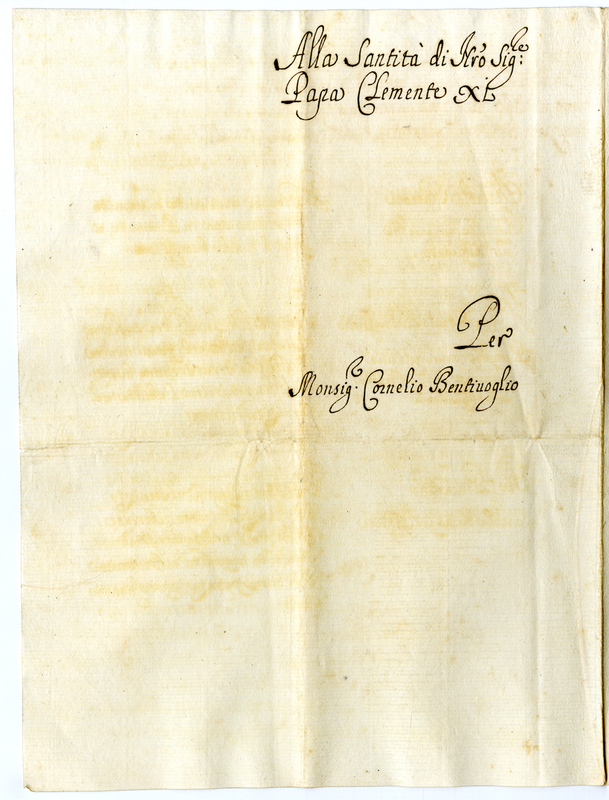 Alla Santità di Nro Sig:re
Papa Clemente XI.
Per
Monsig.r Cornelio Bentivoglio